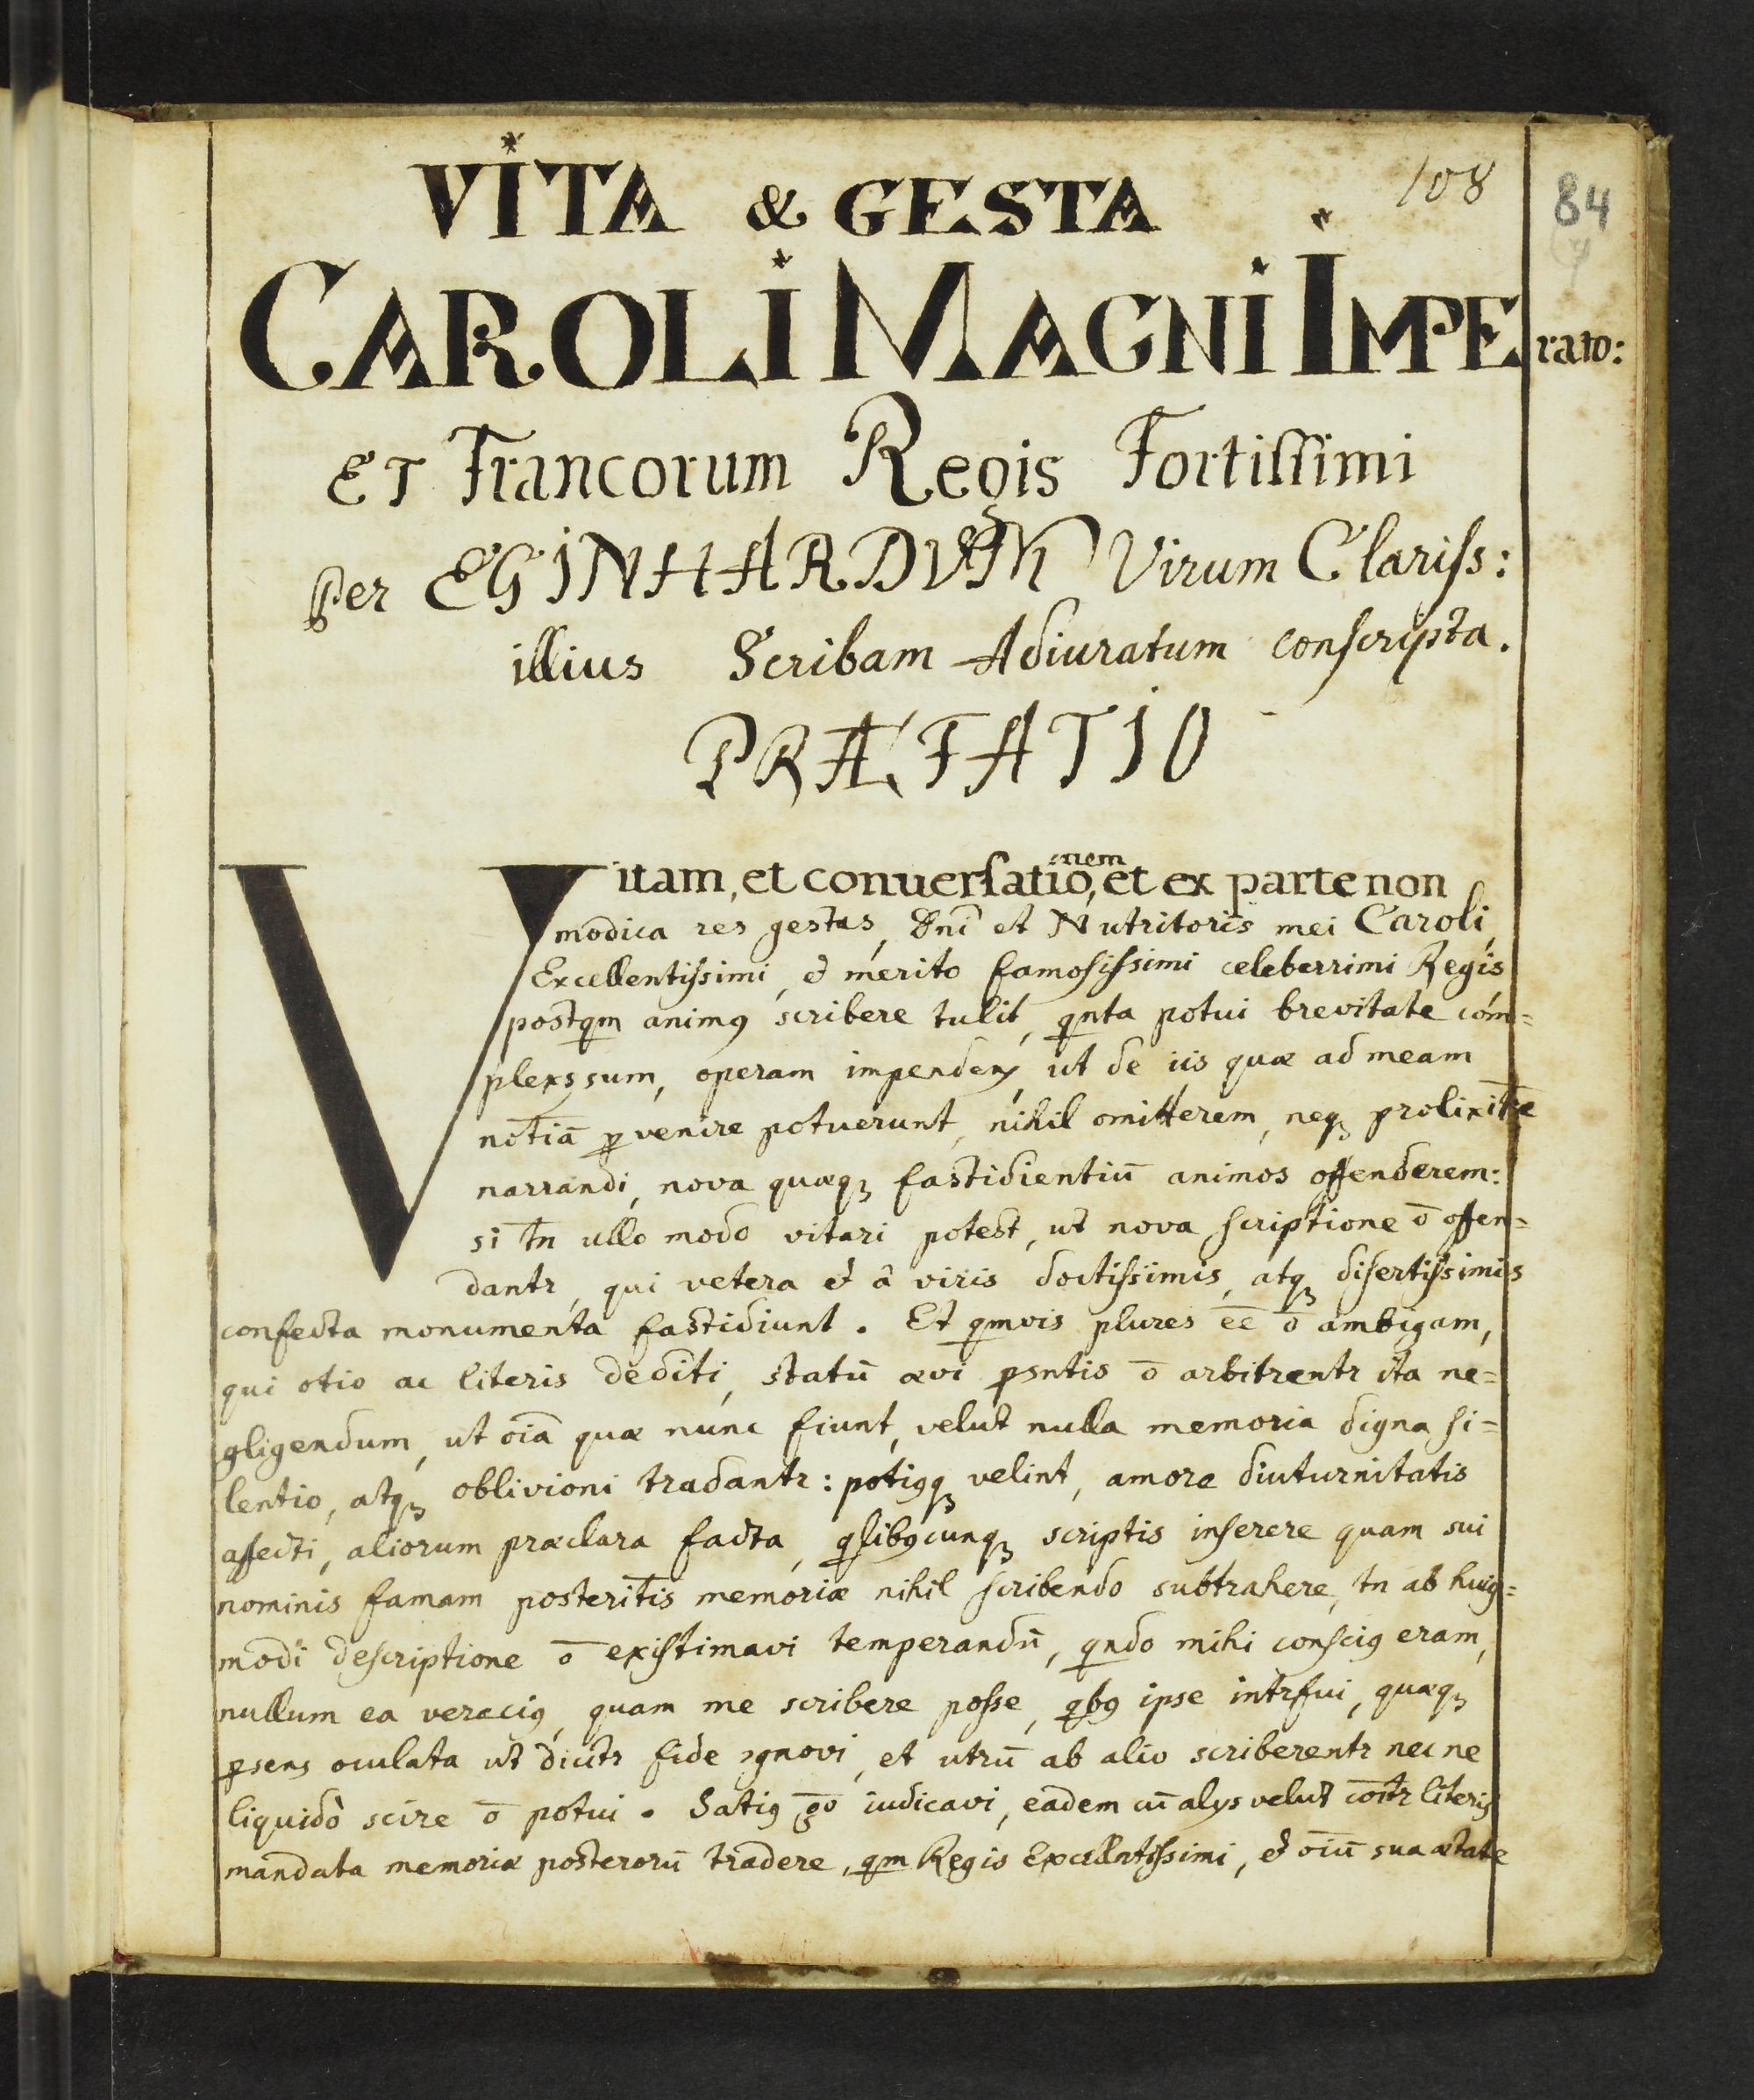 108
84
VITA & GESTA
CAROLI MAGNI IMPErato:
ET Francorum Regis Fortissimi
Per EGINHARDVM Virum Clariss:
illius Scribam Adiuratum conscripta.
PRÆFATIO
Vitam, et conuersatiōnem, et ex parte non
modica res gestas, Dnī et Nutritoris mei Caroli,
Excellentissimi, & merito famosissimi celeberrimi Regis
postqm animꝯ scribere tulit, qnta potui brevitate com=
plexꝯ sum, operam impendens, ut de iis quæ ad meam
notiā ꝑvenire potuerunt, nihil omitterem, neqꝫ prolixitīe
narrandi, nova quæqꝫ fastidientiū animos offenderem:
si tn̄ ullo modo vitari potest, ut nova scriptione ō offen=
dantr, qui vetera & â viris doctissimis, atqꝫ disertissimis
confecta monumenta fastidiunt. Et qmvis plures ēē ō ambigam,
qui otio ac literis dediti, statū ævi p̄sntis ō arbitrentr ita ne=
gligendum, ut oīa quæ nunc fiunt, velut nulla memoria digna si=
lentio, atqꝫ oblivioni tradantr: potiꝯqꝫ velint, amore diuturnitatis
affecti, aliorum præclara facta, qlibꝯcunqꝫ scriptis inserere quam sui
nominis famam posteritīs memoriæ nihil scribendo subtrahere, tn ab huiꝯ=
modi descriptione ō existimavi temperandū, qndo mihi consciꝯ eram,
nullum ea veraciꝯ, quam me scribere posse, qbꝯ ipse intrfui, quæqꝫ
p̄sens oculata ut dicitr fide ꝯgnovi, et utrū ab alio scriberentr nec ne
liquidò scire ō potui. Satiꝯ gō iudicavi, eadem cū alys velut cōītr literis
mandata memoriæ posterorū tradere, qm Regis Excellntissimi, & oīū sua ætate